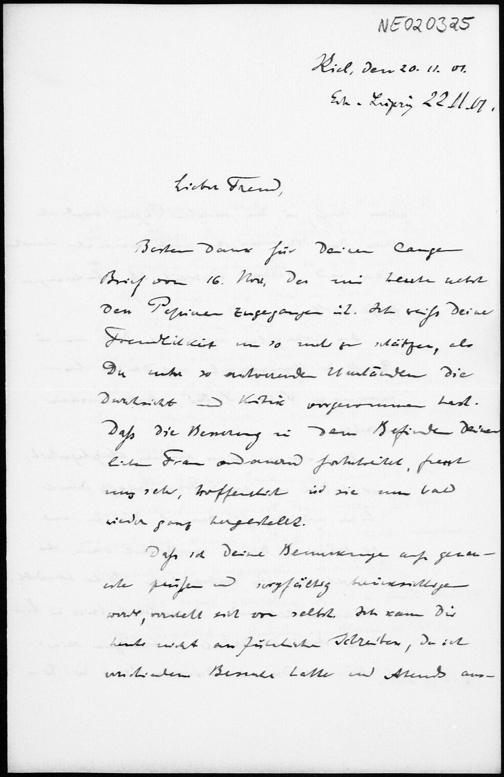 NE020325
Kiel, den 20. 11. 01.
Erh. Leipzig 22 II 01.
Lieber Freund,
Besten Dank für Deinen langen
Brief vom 16. Nov., der mir heute nebst
den Papieren zugegangen ist. Ich weiß Deine
Freundlichkeit um so mehr zu schätzen, als
Du unter so Umständen die
Durchsicht und Kritik vorgenommen hast.
Daß die Besserung in dem Befinden Deiner
lieben Frau andauernd fortschreitet, freut
mich sehr, hoffentlich ist sie nun bald
wieder ganz hergestellt.
Daß ich Deine Bemerkungen aufs genau-
este prüfen und sorgfältig berücksichtigen
werde, versteht sich von selbst. Ich kann Dir
heute nicht ausführlicher schreiben, da ich
verschiedene Besuche hatte und Abends aus-